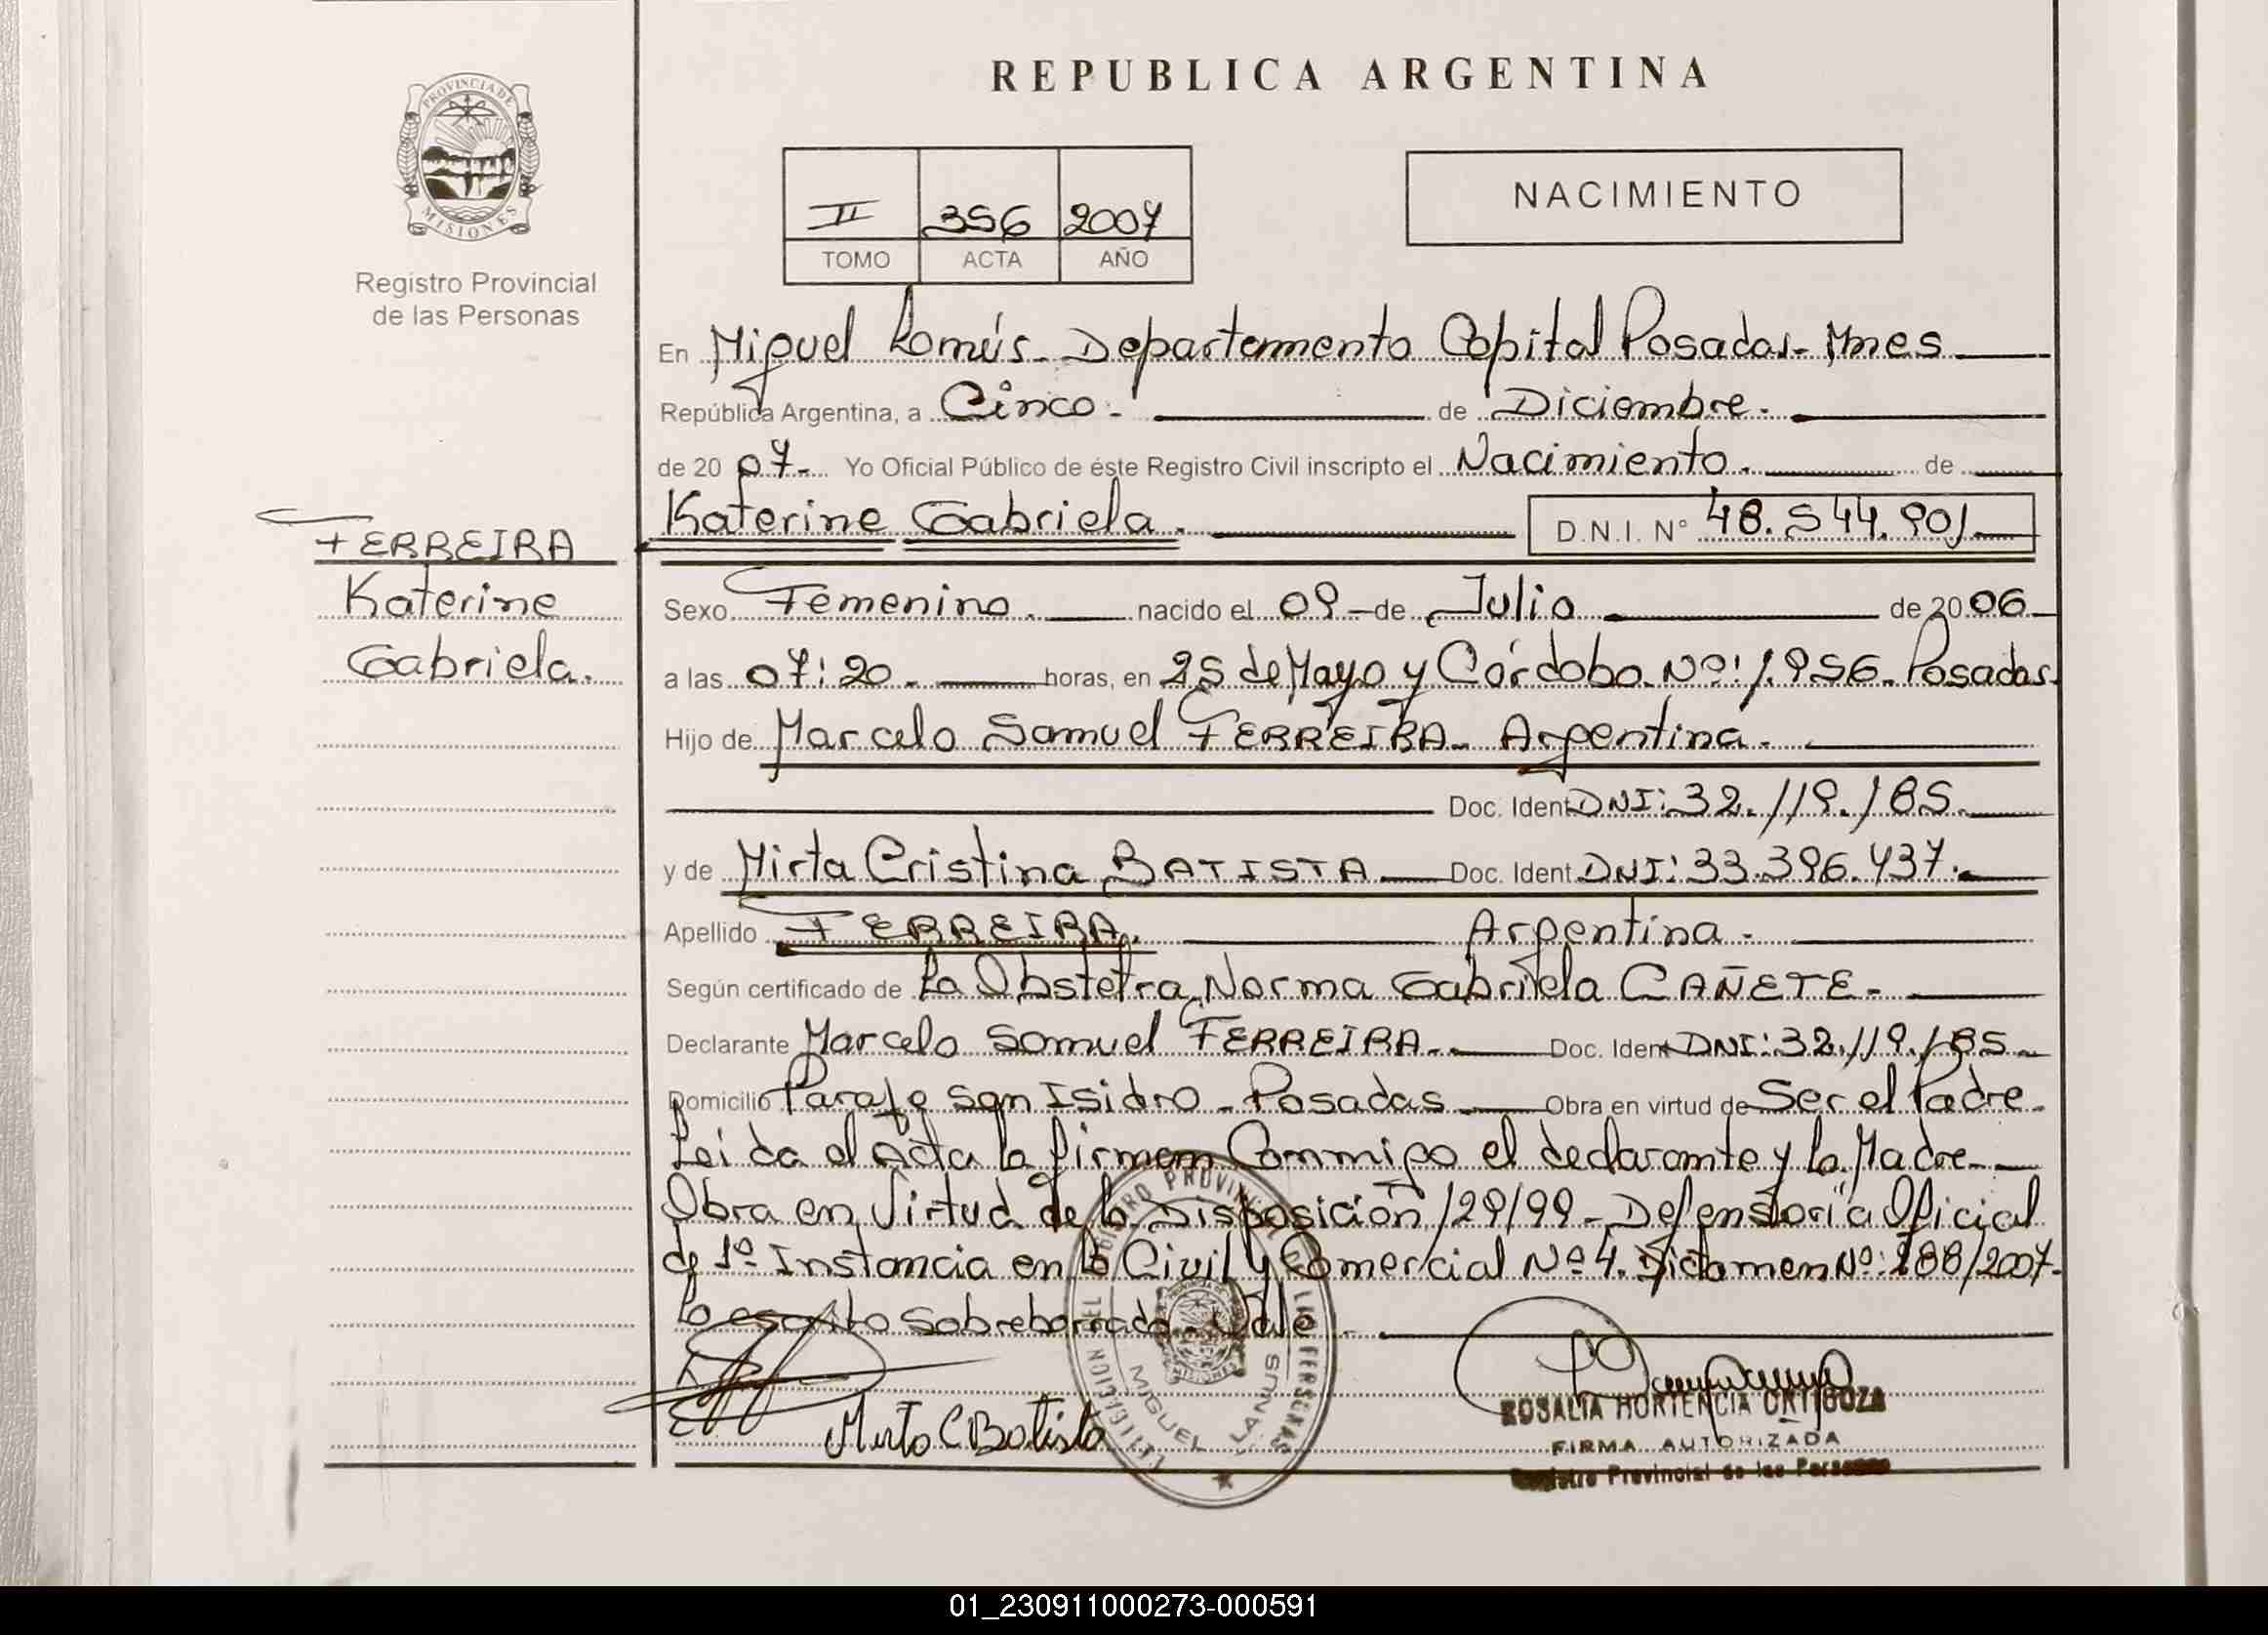 REPUBLICA ARGENTINA
PROVINCIA DE
MISIONES
Registro Provincial
de las Personas
II 356 2007
TOMO ACTA AÑO
NACIMIENTO
En Miguel Lanús - Departamento Capital Posadas - Mnes
República Argentina, a Cinco.- de Diciembre.
de 20 07- Yo Oficial Público de éste Registro Civil inscripto el Nacimiento. de
Katerine Gabriela. D.N.I. N° 48.544.901
FERREIRA
Katerine
Gabriela.
Sexo Femenino. nacido el 09 - de Julio de 2006
a las 07:20. horas, en 25 de Mayo y Córdoba Nº: 1.956. Posadas.
Hijo de Marcelo Samuel FERREIRA - Argentina.
Doc. Ident DNI: 32.119.185.
y de Mirta Cristina BATISTA Doc. Ident DNI: 33.396.437.
Apellido FERREIRA. Argentina.
Según certificado de La Obstetra, Norma Gabriela CAÑETE -
Declarante Marcelo Samuel FERREIRA. Doc. Ident DNI: 32.119.185
Domicilio Paraje San Isidro - Posadas Obra en virtud de Ser el Padre.
Leida el Acta la firman Conmigo el declarante y la Madre
Obra en Virtud de la Disposición 129/99 - Defensoría Oficial
de 1º Instancia en lo Civil y Comercial Nº 4. Dictamen Nº: 288/2007-
Lo escrito sobreborrado - Vale
Mirta C Batista
MIGUEL LANUS
ROSALIA HORTENCIA ORTIGOZA
FIRMA AUTORIZADA
Registro Provincial de las Personas
01_230911000273-000591